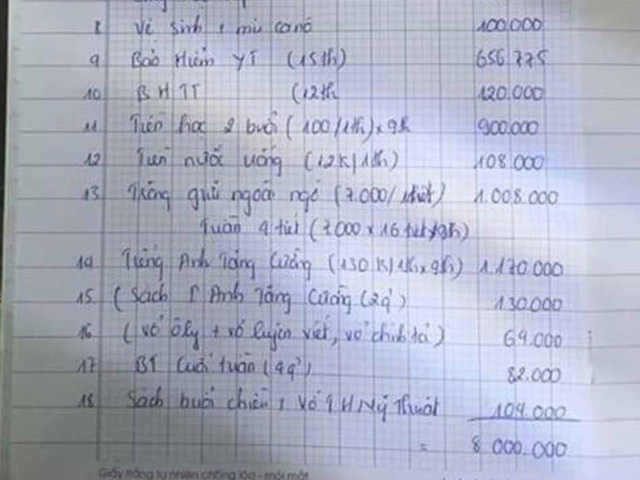 8 Vệ sinh, mũ ca nô 100.000
9 Bảo Hiểm YT (15th) 656.775
10 BHTT (12th 120.000
11 Tiền học 2 buổi (100/1th) x 9th 900.000
12 Tiền nước uống (12K/1th) 108.000
13 Trông giữ ngoài ngờ (7.000/1tiết) 1.008.000
Tuần 4 tiết (7000 x 16 tiết/9th)
14 Tiếng Anh Tăng Cường (130K/1th x 9th) 1.170.000
15 (Sách T Anh Tăng Cường (2q) 130.000
16 (vở Ôly + vở luyện viết, vở chính tả) 64.000
17 BT Cuối tuần (4q) 82.000
18 Sách buổi chiều, vở TH Mỹ Thuật 104.000
= 8.000.000
Giấy trắng tự nhiên chống lóa - mỏi mắt